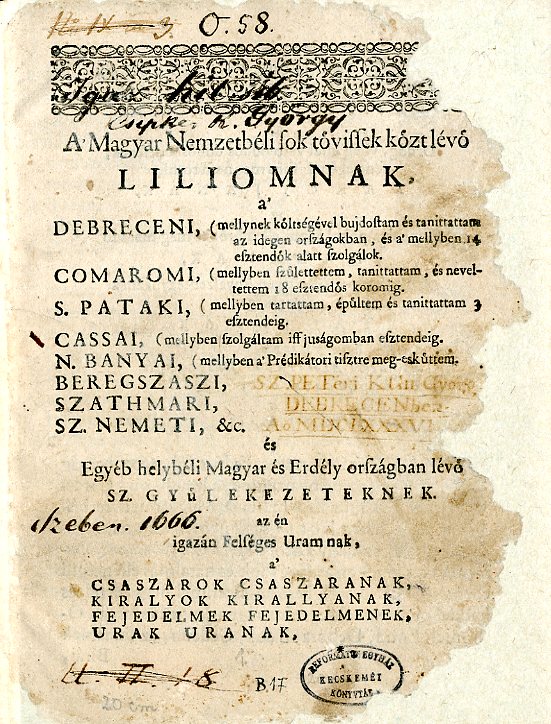 O. 58.
Igaz hit
Csipkés K. György
A' Magyar Nemzetbéli sok tövissek közt lévő
LILIOMNAK,
a'
DEBRECENI, (mellynek költségével bujdostam és tanittattam
az idegen országokban, és a' mellyben 14
esztendők alatt szolgálok.
COMAROMI, (mellyben születtettem, tanittattam, és nevel-
tettem 18 esztendős koromig.
S. PATAKI, (mellyben tartattam, épültem és tanittattam 3
esztendeig.
CASSAI, (mellyben szolgáltam iffjuságomban esztendeig.
N. BANYAI, (mellyben a' Prédikátori tisztre meg-esküttem.
BEREGSZASZI,
SZATHMARI,
SZ. NEMETI, &c.
és
Egyéb helybéli Magyar és Erdély országban lévő
SZ. GYÜLEKEZETEKNEK.
Szeben. 1666.
az én
igazán Felséges Uramnak,
a'
CSASZAROK CSASZARANAK,
KIRALYOK KIRALLYANAK,
FEJEDELMEK FEJEDELMENEK,
URAK URANAK,
B17
20 cm
REFORMÁTUS EGYHÁZ
KECSKEMÉT
KÖNYVTÁR